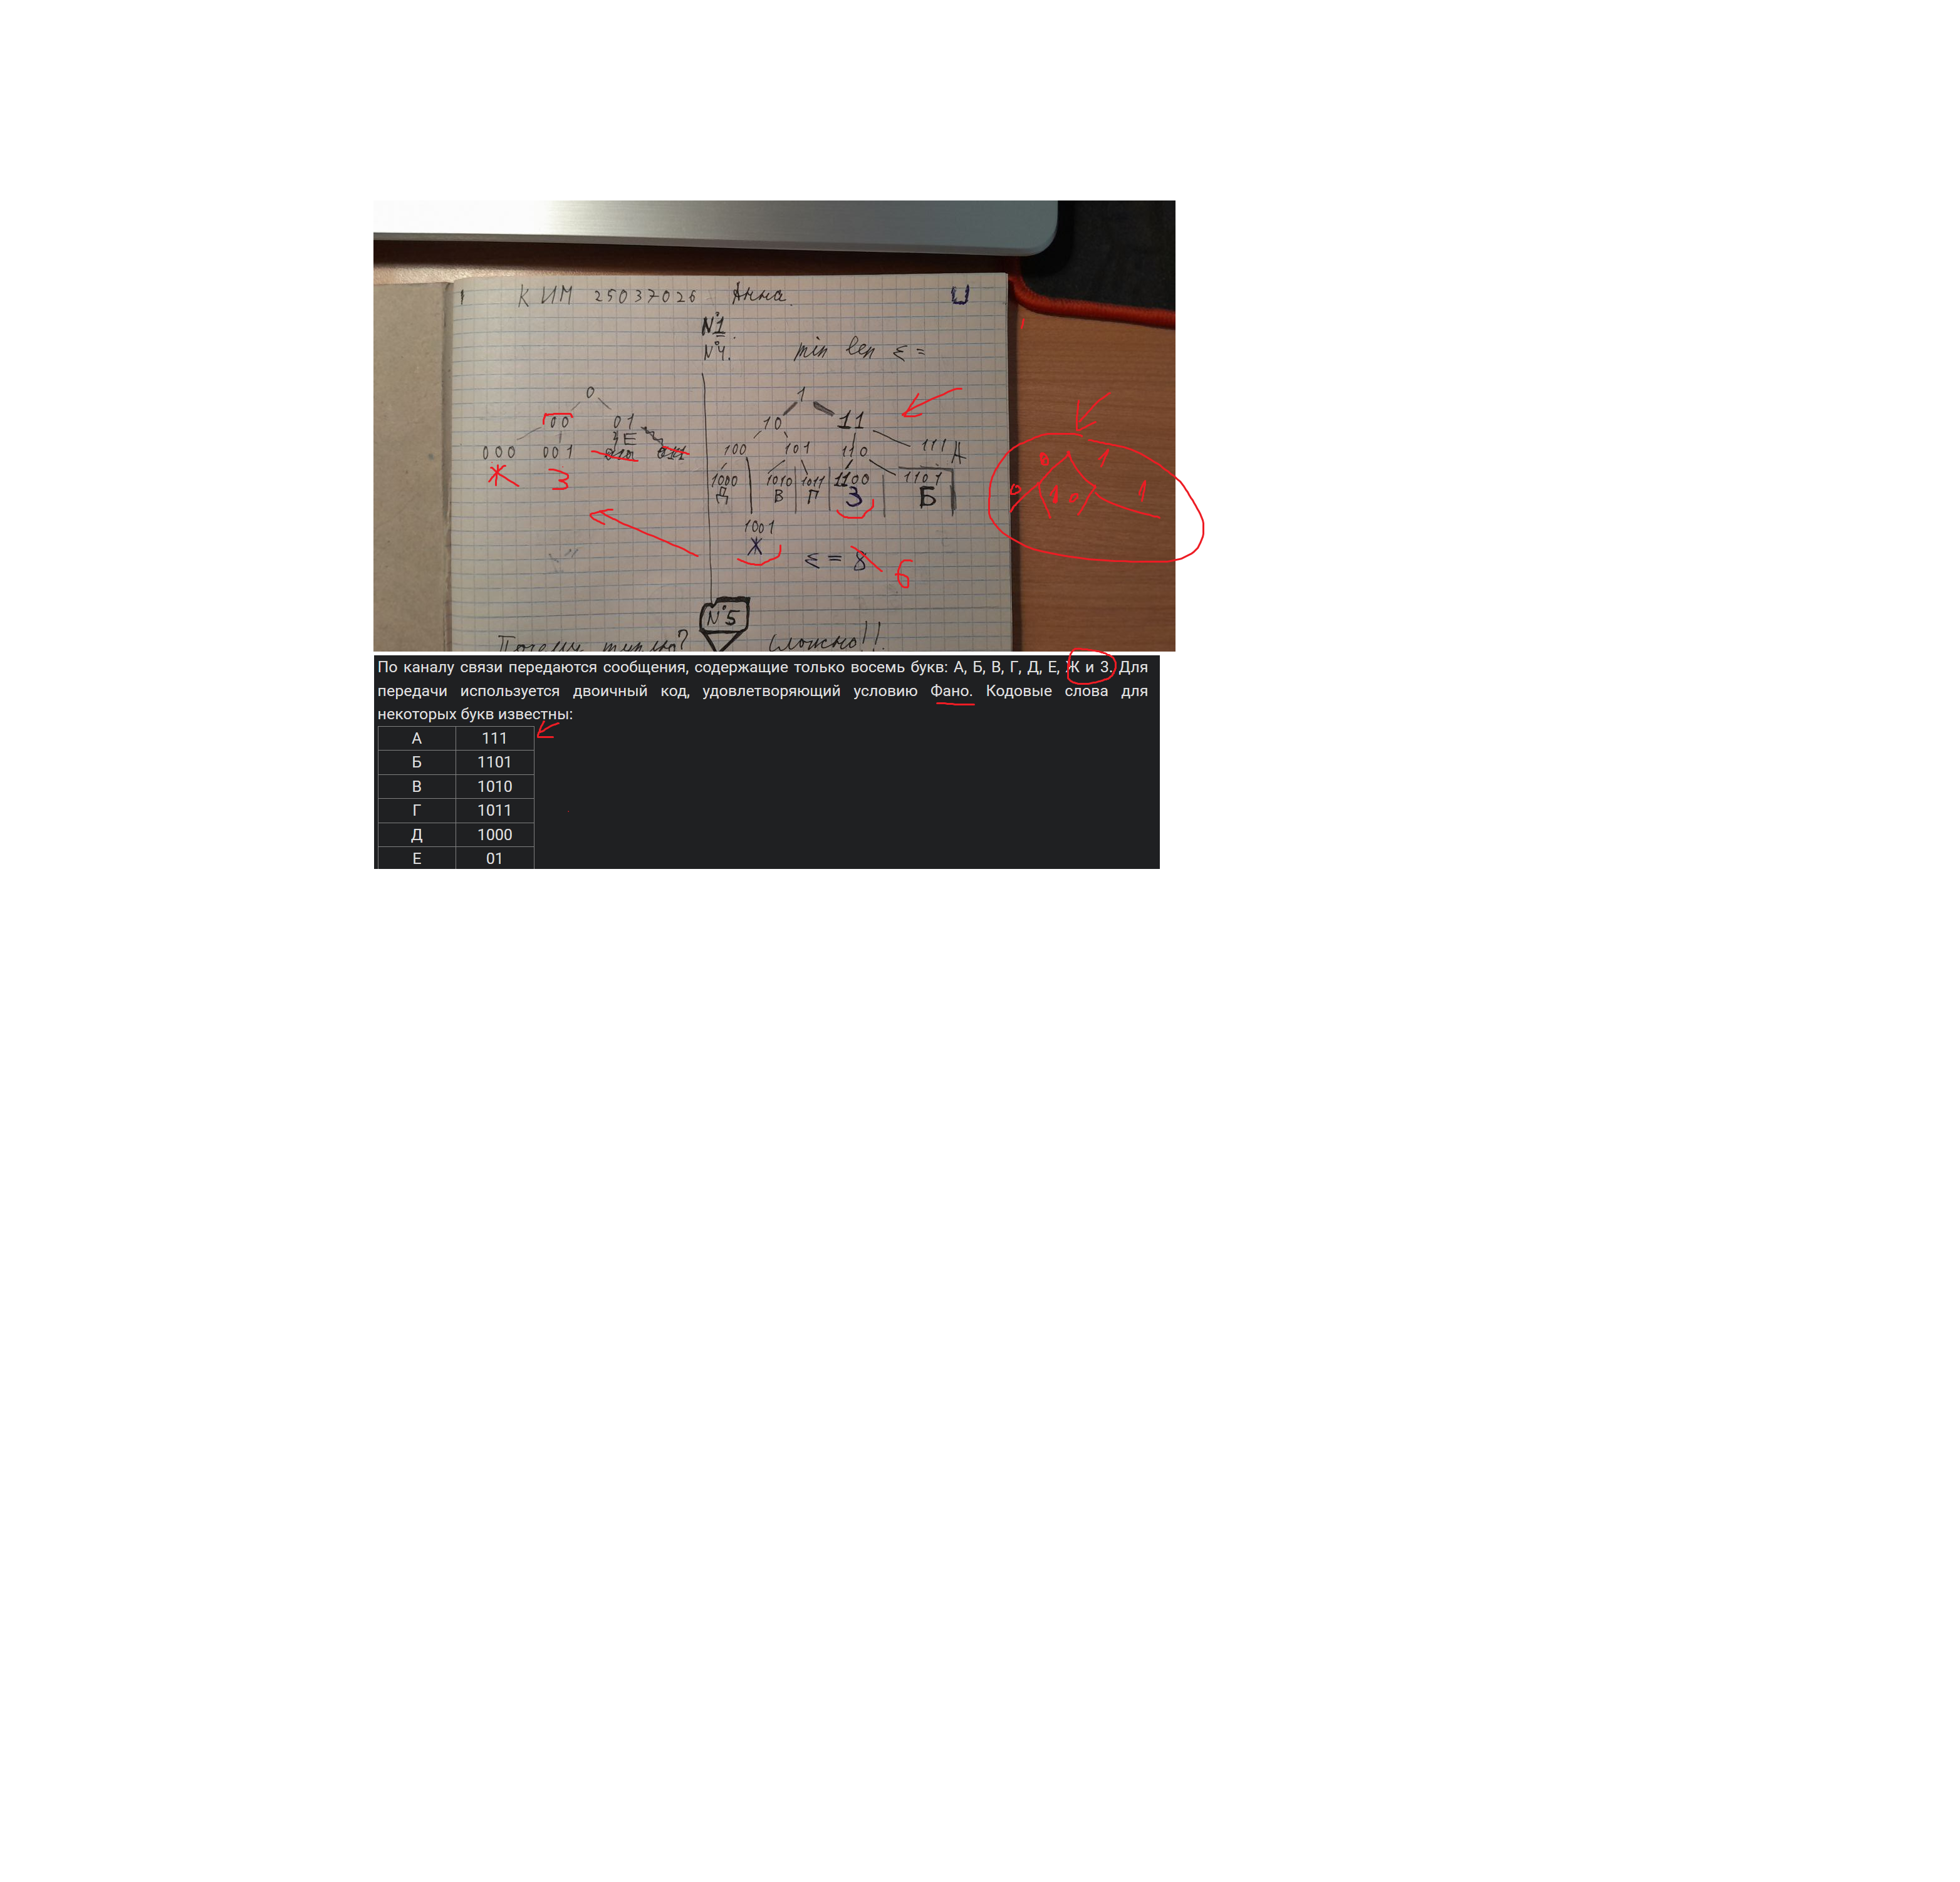 КИМ 25037026 Анна.
№1.
№4. min len ε =
0 1
00 01 10 11
E
000 001 100 101 110 111 А
Ж З
1000 1010 1011 1100 1101
Д В Г З Б
1001
Ж
ε = 8 6
0 1
0 1 0 1
№5
Почему
сложно!!
По каналу связи передаются сообщения, содержащие только восемь букв: А, Б, В, Г, Д, Е, Ж и З. Для
передачи используется двоичный код, удовлетворяющий условию Фано. Кодовые слова для
некоторых букв известны:
А 111
Б 1101
В 1010
Г 1011
Д 1000
Е 01